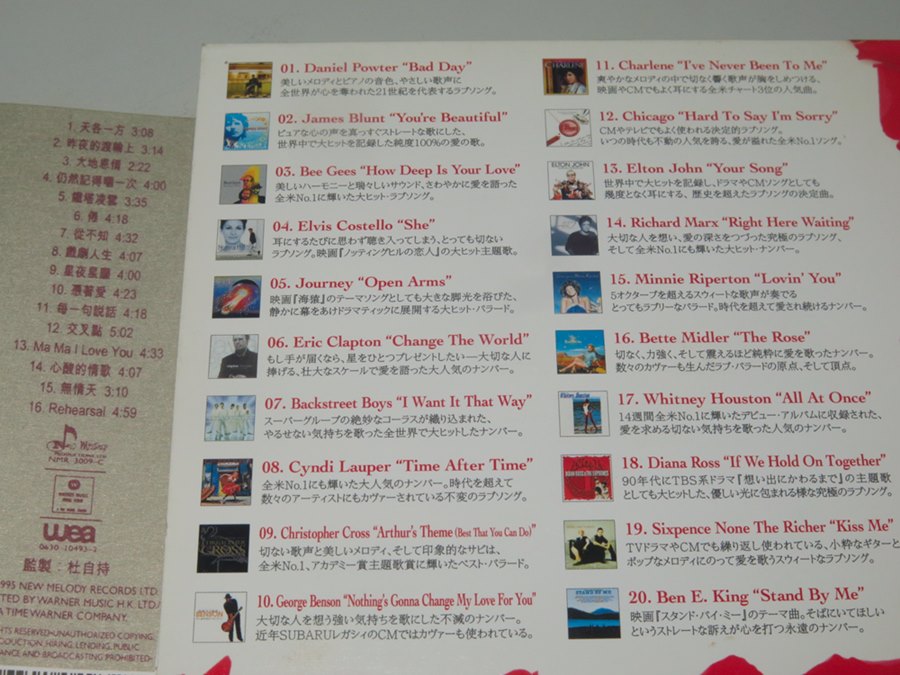 1. 天各一方 3:08
2. 昨夜的渡輪上 3:14
3. 大地恩情 2:22
4. 仍然記得嗰一次 4:00
5. 鐵塔凌雲 3:35
6. 倦 4:18
7. 從不知 4:32
8. 戲劇人生 4:07
9. 星夜星塵 4:00
10. 憑著愛 4:23
11. 每一句說話 4:18
12. 交叉點 5:02
13. Ma Ma I Love You 4:33
14. 心酸的情歌 4:07
15. 無情天 3:10
16. Rehearsal 4:59
NMR 3009-C
wea
0630-10493-2
監製：杜自持
1995 NEW MELODY RECORDS LTD.
TED BY WARNER MUSIC H.K. LTD./
A TIME WARNER COMPANY.
HTS RESERVED•UNAUTHORIZED COPYING,
ODUCTION, HIRING, LENDING, PUBLIC
ANCE AND BROADCASTING PROHIBITED•
01. Daniel Powter “Bad Day”
美しいメロディとピアノの音色、やさしい歌声に
全世界が心を奪われた21世紀を代表するラブソング。
02. James Blunt “You're Beautiful”
ピュアな心の声を真っすぐストレートな歌にした、
世界中で大ヒットを記録した純度100%の愛の歌。
03. Bee Gees “How Deep Is Your Love”
美しいハーモニーと瑞々しいサウンド、さわやかに愛を謳った
全米No.1に輝いた大ヒット・ラブソング。
04. Elvis Costello “She”
耳にするたびに思わず聴き入ってしまう、とっても切ない
ラブソング。映画『ノッティングヒルの恋人』の大ヒット主題歌。
05. Journey “Open Arms”
映画『海猿』のテーマソングとしても大きな脚光を浴びた、
静かに幕をあけドラマティックに展開する大ヒット・バラード。
06. Eric Clapton “Change The World”
もし手が届くなら、星をひとつプレゼントしたい―大切な人に
捧げる、壮大なスケールで愛を謳った大人気のナンバー。
07. Backstreet Boys “I Want It That Way”
スーパーグループの絶妙なコーラスが織り込まれた、
やるせない気持ちを歌った全世界で大ヒットしたナンバー。
08. Cyndi Lauper “Time After Time”
全米No.1にも輝いた大人気のナンバー。時代を超えて
数々のアーティストにもカヴァーされている不変のラブソング。
09. Christopher Cross “Arthur's Theme (Best That You Can Do)”
切ない歌声と美しいメロディ、そして印象的なサビは、
全米No.1、アカデミー賞主題歌賞に輝いたベスト・バラード。
10. George Benson “Nothing's Gonna Change My Love For You”
大切な人を想う強い気持ちを歌にした不滅のナンバー。
近年SUBARUレガシィのCMではカヴァーも使われている。
11. Charlene “I've Never Been To Me”
爽やかなメロディの中で切なく響く歌声が胸をしめつける、
映画やCMでもよく耳にする全米チャート3位の人気曲。
12. Chicago “Hard To Say I'm Sorry”
CMやテレビでもよく使われる決定的ラブソング。
いつの時代も不動の人気を誇る、愛が溢れた全米No.1ソング。
13. Elton John “Your Song”
世界中で大ヒットを記録し、ドラマやCMソングとしても
幾度となく耳にする、歴史を超えたラブソングの決定曲。
14. Richard Marx “Right Here Waiting”
大切な人を想い、愛の深さをつづった究極のラブソング、
そして全米No.1にも輝いた大ヒット・ナンバー。
15. Minnie Riperton “Lovin' You”
5オクターブを超えるスウィートな歌声が奏でる
とってもラブリーなバラード。時代を超えて愛され続けるナンバー。
16. Bette Midler “The Rose”
切なく、力強く、そして震えるほど純粋に愛を歌ったナンバー。
数々のカヴァーも生んだラブ・バラードの原点、そして頂点。
17. Whitney Houston “All At Once”
14週間全米No.1に輝いたデビュー・アルバムに収録された、
愛を求める切ない気持ちを歌った人気のナンバー。
18. Diana Ross “If We Hold On Together”
90年代にTBS系ドラマ『想い出にかわるまで』の主題歌
としても大ヒットした、優しい光に包まれる様な究極のラブソング。
19. Sixpence None The Richer “Kiss Me”
TVドラマやCMでも繰り返し使われている、小粋なギターと
ポップなメロディにのって愛を歌うスウィートなラブソング。
20. Ben E. King “Stand By Me”
映画『スタンド・バイ・ミー』のテーマ曲。そばにいてほしい
というストレートな訴えが心を打つ永遠のナンバー。